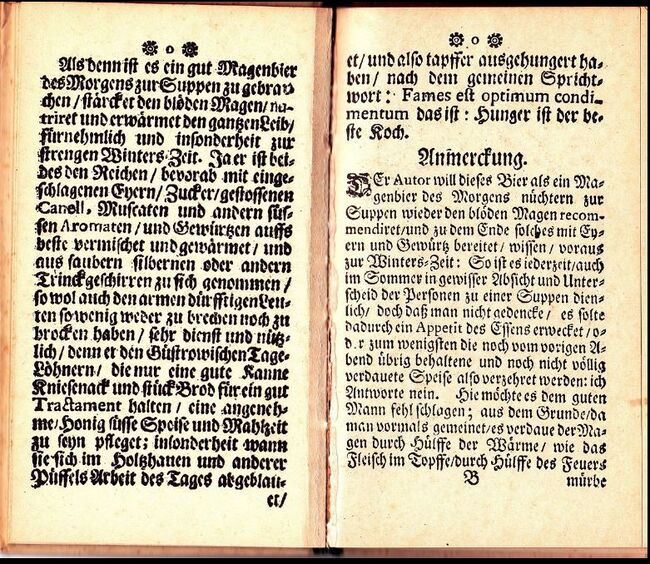 o
Als denn ist es ein gut Magenbier
des Morgens zur Suppen zu gebrau-
chen / stärcket den blöden Magen / nu-
triret und erwärmet den gantzen Leib /
fürnehmlich und insonderheit zur
strengen Winters-Zeit. Ja er ist bei-
des den Reichen / bevorab mit einge-
schlagenen Eyern / Zucker / gestoffenen
Canell, Muscaten und andern süs-
sen Aromaten / und Gewürtzen auffs
beste vermischet und gewärmet / und
aus saubern silbernen oder andern
Trinckgeschirren zu sich genommen /
so wol auch den armen dürfftigen Leu-
ten so wenig weder zu brechen noch zu
brocken haben / sehr dienst und nütz-
lich / denn er den Güstrowischen Tage-
Löhnern / die nur eine gute Kanne
Kniesenack und stück Brod für ein gut
Tractament halten / eine angeneh-
me / Honig süsse Speise und Mahlzeit
zu seyn pfleget; insonderheit wann
sie sich im Holtzhauen und anderer
Püffels Arbeit des Tages abgeblau-
et /
o
et / und also tapffer ausgehungert ha-
ben / nach dem gemeinen Spricht-
wort: Fames est optimum condi-
mentum das ist: Hunger ist der be-
ste Koch.
Anmerckung.
DEr Autor will dieses Bier als ein Ma-
genbier des Morgens nüchtern zur
Suppen wieder den blöden Magen recom-
mendiret / und zu dem Ende solches mit Ey-
ern und Gewürtz bereitet / wissen / voraus
zur Winters-Zeit: So ist es iederzeit / auch
im Sommer in gewisser Absicht und Unter-
scheid der Personen zu einer Suppen dien-
lich / doch daß man nicht gedencke / es solte
dadurch ein Appetit des Essens erwecket / o-
d.r zum wenigsten die noch vom vorigen A-
bend übrig behaltene und noch nicht völlig
verdauete Speise also verzehret werden: ich
Antworte nein. Hie möchte es dem guten
Mann fehl schlagen; aus dem Grunde / da
man vormals gemeinet / es verdaue der Ma-
gen durch Hülffe der Wärme / wie das
Fleisch im Topffe / durch Hülffe des Feuers
B mürbe